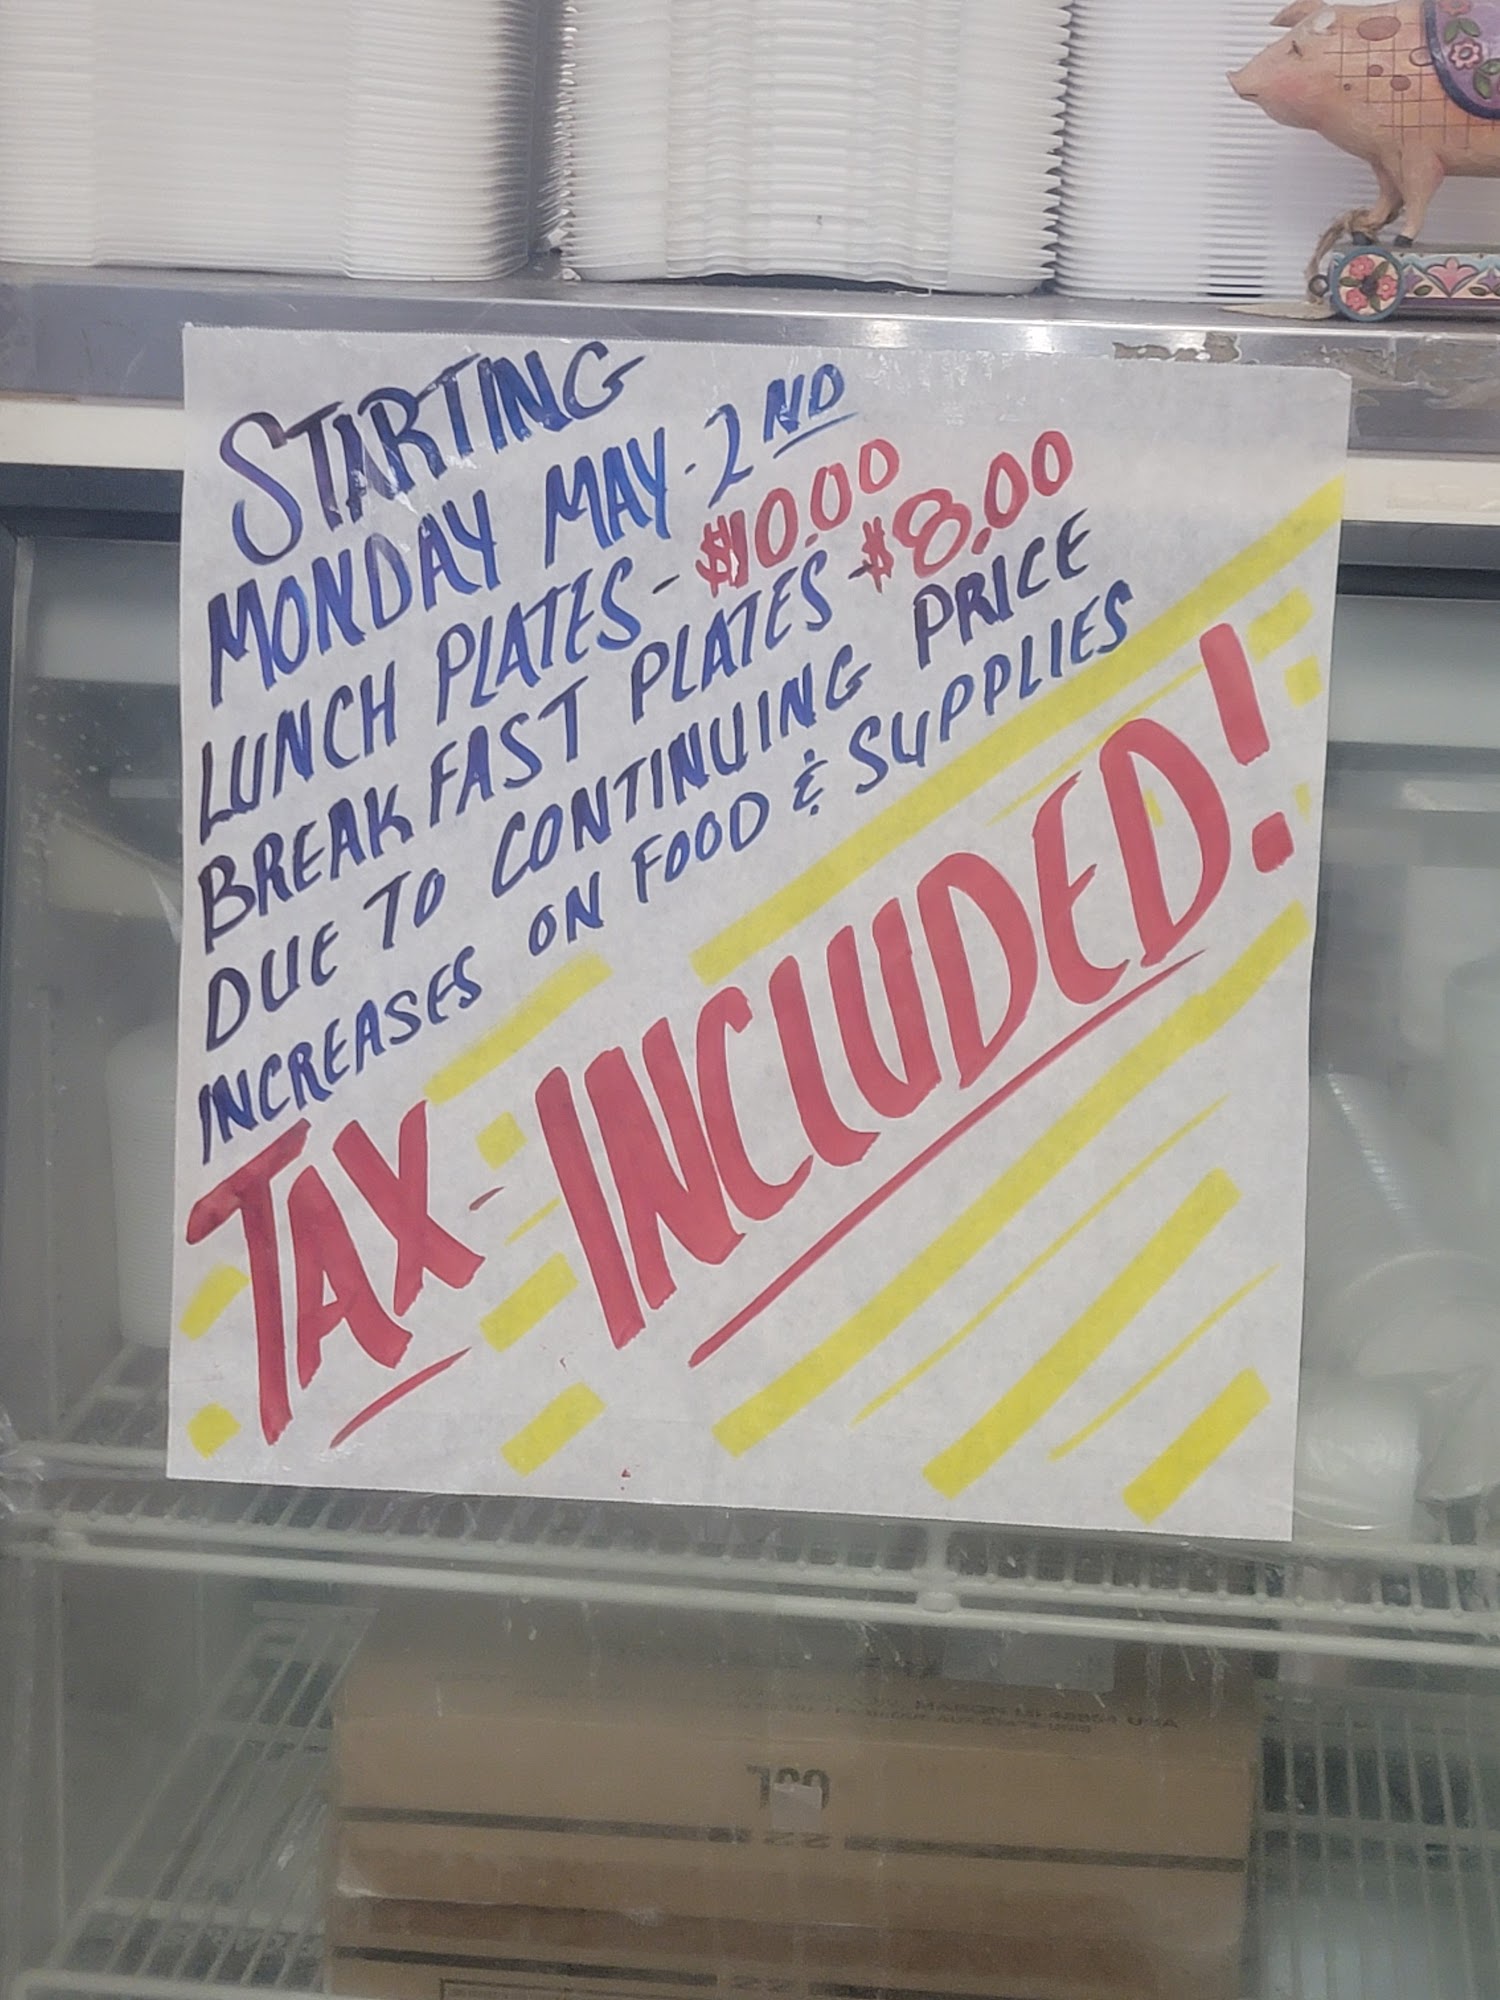 STARTING
MONDAY MAY-2ND
LUNCH PLATES-$10.00
BREAKFAST PLATES-$8.00
DUE TO CONTINUING PRICE
INCREASES ON FOOD & SUPPLIES
TAX-INCLUDED!
MASON MI 48854 USA